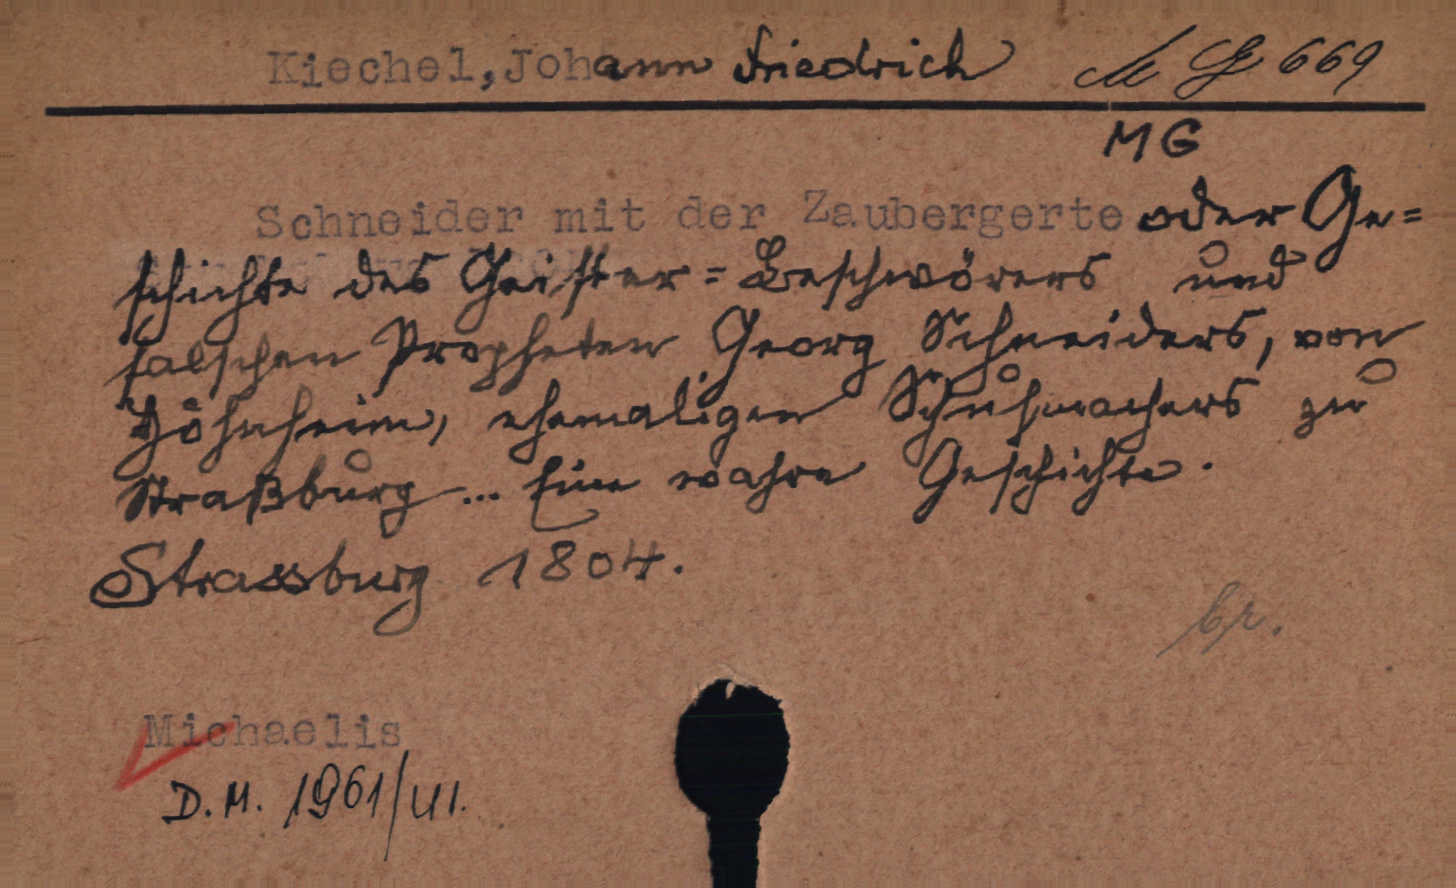 Kiechel, Johann Friedrich M G 669
MG
Schneider mit der Zaubergerte oder Ge=
schichte des Geister=Beschwörers und
falschen Propheten Georg Schneiders, von
Höhnheim, ehemaligen Schuhmachers zu
Straßburg ... Eine wahre Geschichte.
Strassburg 1804.
br.
Michaelis
D.M. 1961/